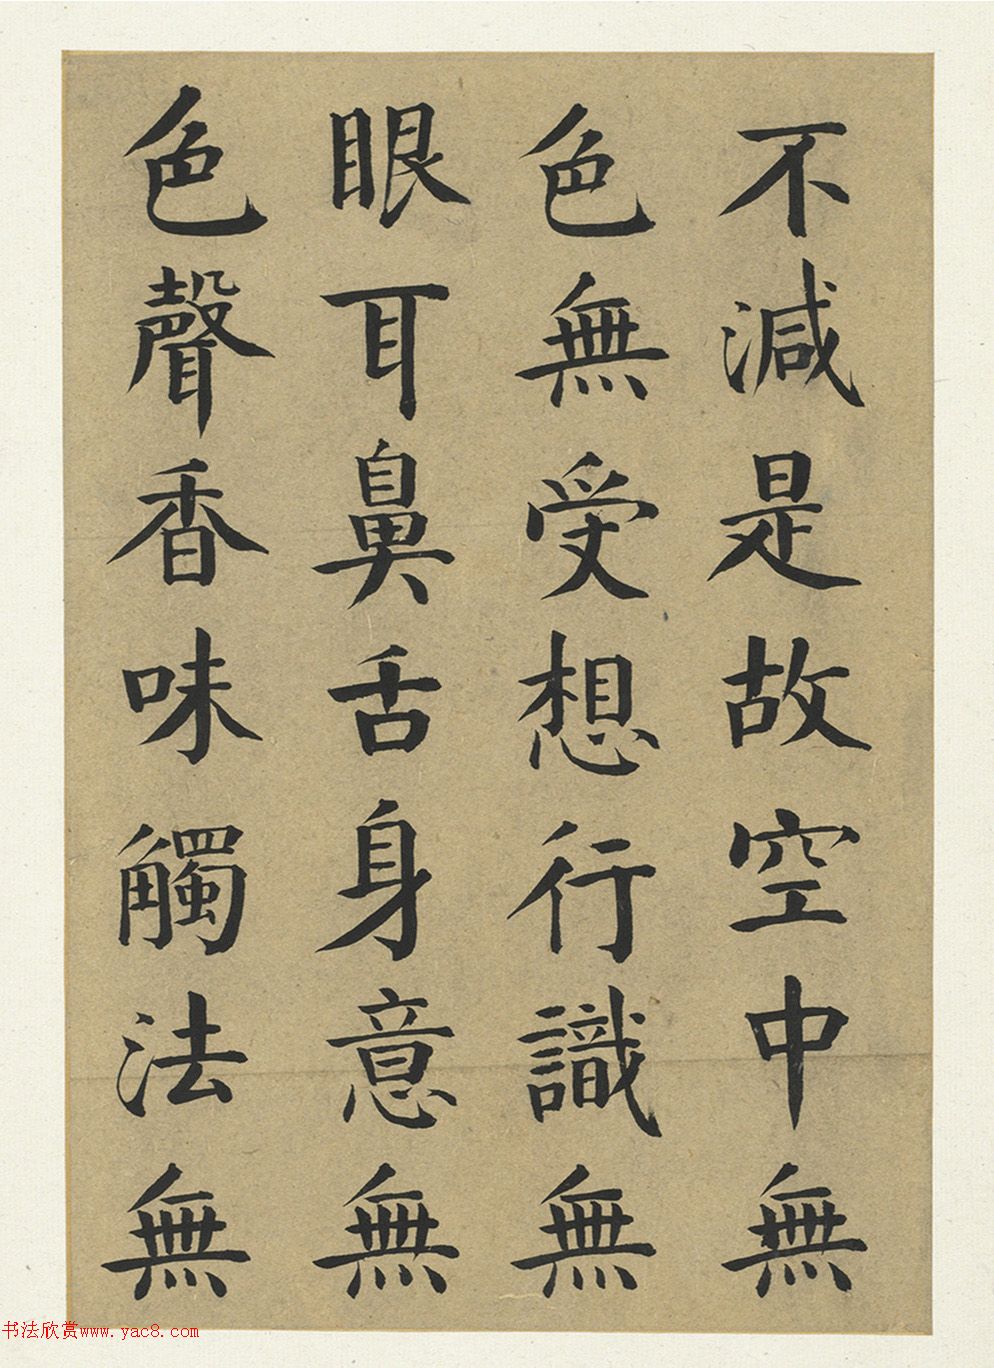 不減是故空中無
色無受想行識無
眼耳鼻舌身意無
色聲香味觸法無
书法欣赏www.yac8.com